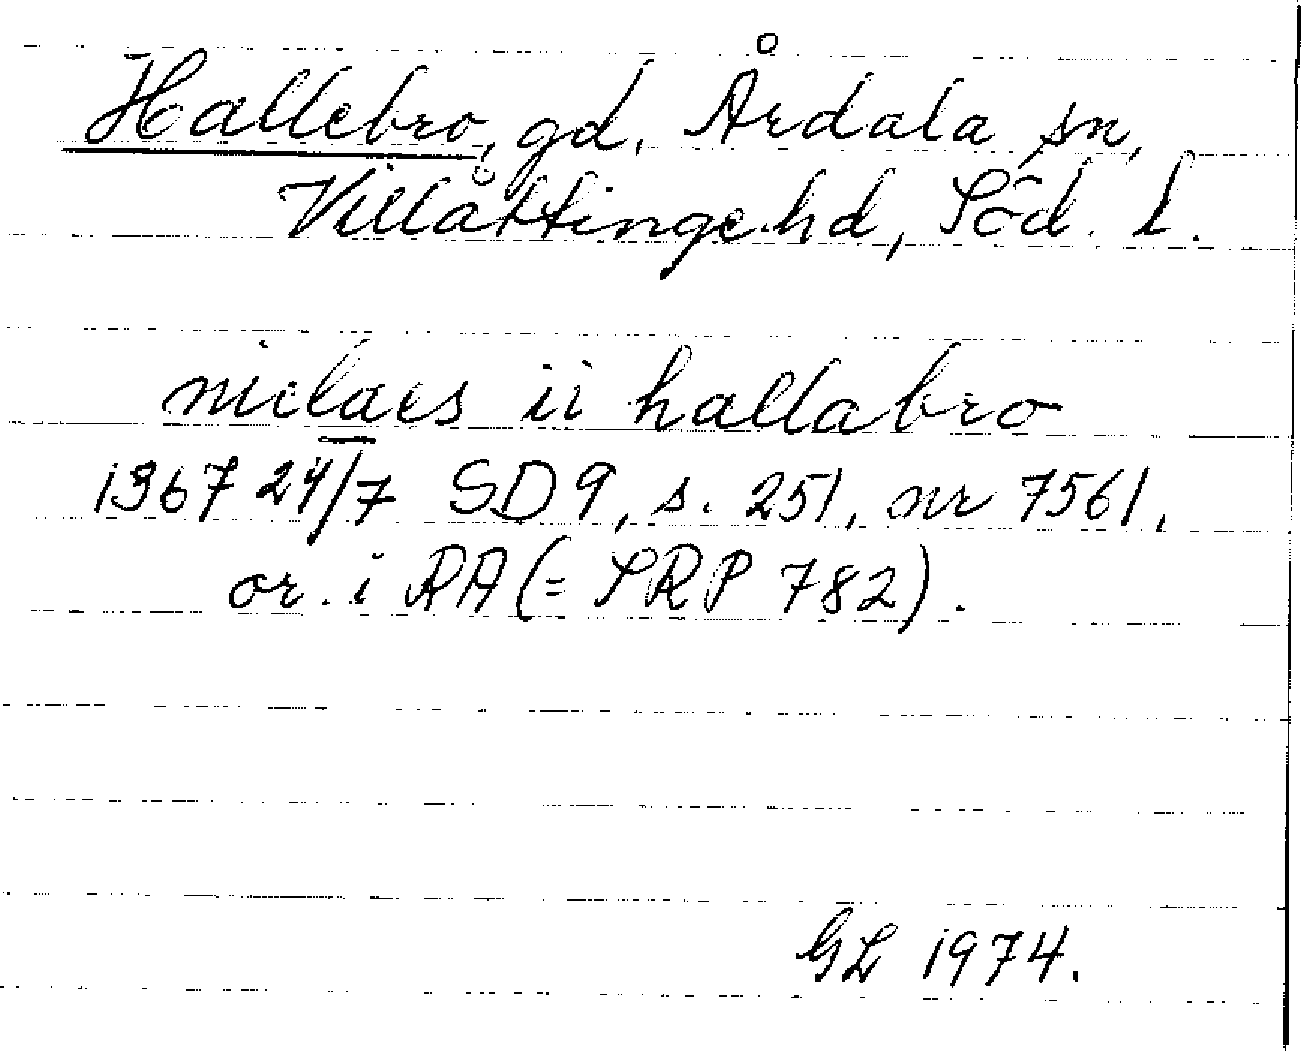 Hallebro, gd, Årdala sn,
Villåttinge hd, Söd. l.
niclaes ii hallabro
1367 24/7 SD 9, s. 251, nr 7561,
or. i RA (= SRP 782).
GL 1974.